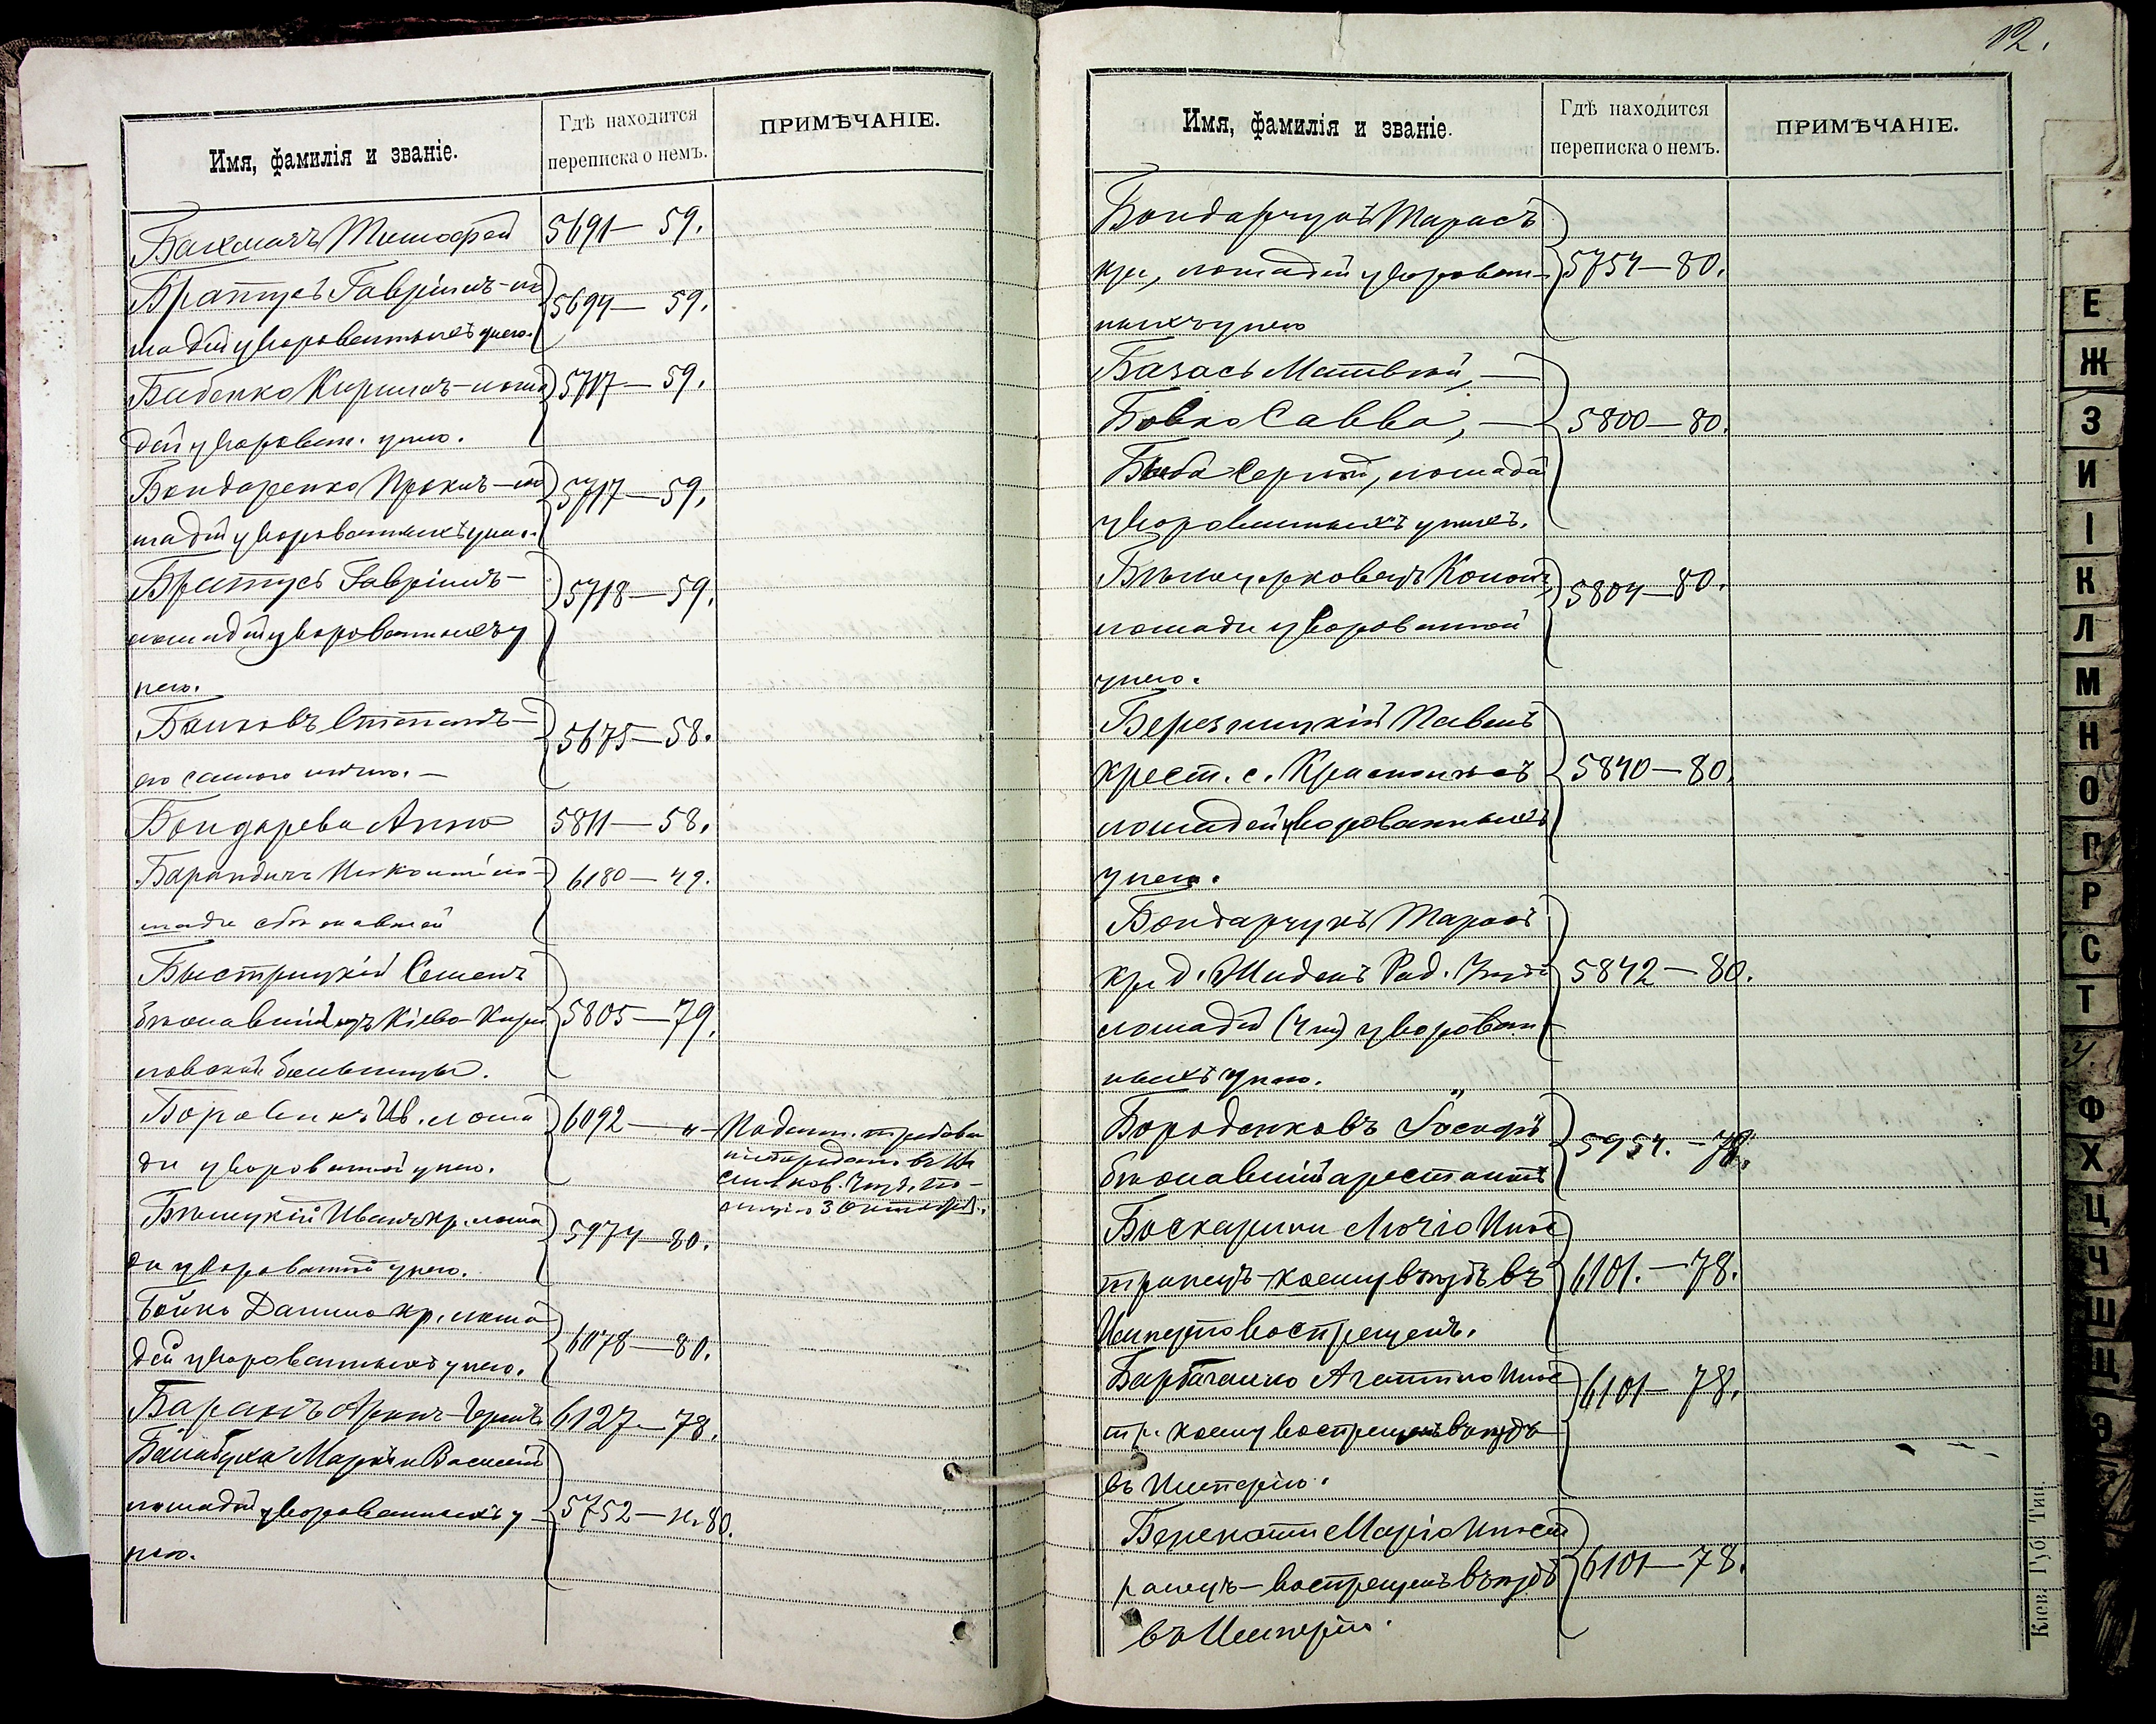 Имя, фамилія и званіе.
Гдѣ находится
переписка о немъ.
ПРИМѢЧАНІЕ.
Бахмачъ Тимофей
5691 — 59.
Братусь Гавріилъ — ло
шадей уворованныхъ у него.
5694 — 59.
Бабенко Кирилъ — лоша
дей уворован. у него.
5717 — 59.
Бондаренко Прокипъ — ло
шадей уворованныхъ у него.
5717 — 59.
Братусь Гавріилъ —
лошадей уворованныхъ у
него.
5718 — 59.
Степанъ —
его самого
5675 — 58.
Бондарева Анна
5811 — 58.
ло
шади сбѣжавшей
6180 — 49.
Быстрицкій Семенъ
бѣжавшій изъ Кіево-Кири
ловской больницы.
5805 — 79.
Боровикъ Ив. лоша
ди уворованной у него.
6092 — „ —
Подлин. требова
ніе передано въ
3 Октября.
Бѣлицкій Иванъ кр. лоша
ди уворованной у него.
5974 — 80.
Бойко Данило кр. лоша
дей уворованныхъ у него.
6078 — 80.
Баранъ
6127 — 78.
Василій
лошадей уворованныхъ у
него.
5752 — 80.
12.
Имя, фамилія и званіе.
Гдѣ находится
переписка о немъ.
ПРИМѢЧАНІЕ.
Бондарчукъ Тарасъ
кр., лошадей уворован-
ныхъ у него
5754 — 80.
Базась Матвѣй, —
Бовко Савва, —
Сергѣй, лошадей
уворованныхъ у нихъ.
5800 — 80.
Бѣлоцерковецъ Кононъ
лошади уворованной
у него.
5804 — 80.
Березницкій Павелъ
крест. с.
лошадей уворованныхъ
у него.
5840 — 80.
Бондарчукъ Тарасъ
кр. д. Рад.
лошадей (4 ) уворован
ныхъ у него.
5842 — 80.
Бороденковъ Іосифъ
бѣжавшій арестантъ
5954. — 78.
Боскарини Лючіо Инос
транецъ — коему въѣздъ въ
Имперію воспрещенъ.
6101. — 78.
Агатино Инос
тр. коему воспрещенъ въѣздъ
въ Имперію.
6101 — 78.
Маріо Иност
ранецъ — воспрещенъ въѣздъ
въ Имперію.
6101 — 78.
Кіев. Губ. Тип.
Е
Ж
З
И
І
К
Л
М
Н
О
П
Р
С
Т
У
Ф
Х
Ц
Ч
Ш
Щ
Э